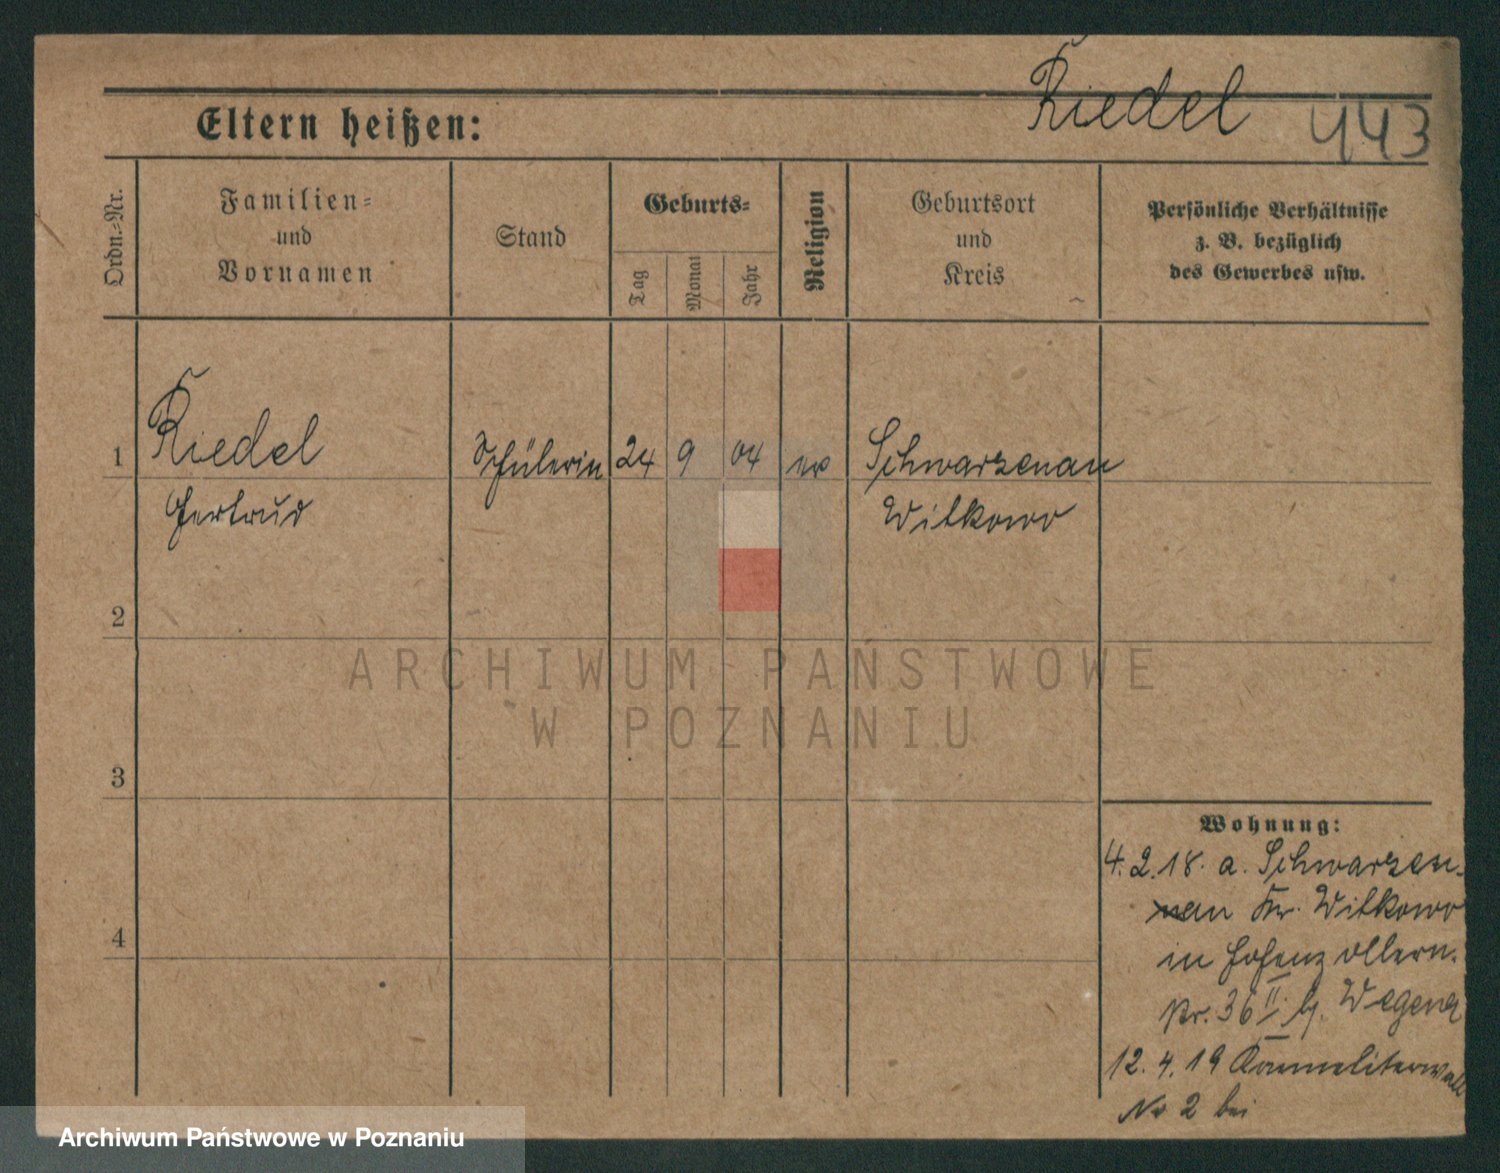 Riedel
443
Eltern heißen:
Ordn.-Nr.
Familien-
und
Vornamen
Stand
Geburts-
Tag
Monat
Jahr
Religion
Geburtsort
und
Kreis
Persönliche Verhältnisse
z. B. bezüglich
des Gewerbes usw.
1 Riedel Schülerin 24 9 04 ev Schwarzenau
Gertrud Witkowo
2
3
4
ARCHIWUM PAŃSTWOWE
W POZNANIU
Wohnung:
4.2.18. a. Schwarzen-
nau Kr. Witkowo
in Hohenzollern-
str. 36 II b. Wegener
12.4.19 Karmeliterwall
No 2 bei
Archiwum Państwowe w Poznaniu